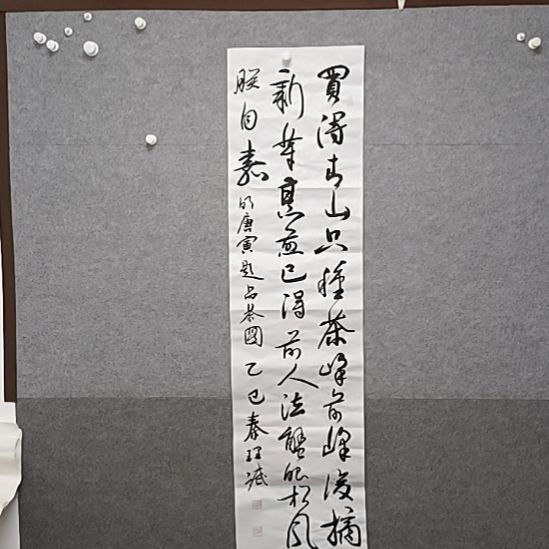 買得青山只種茶峰前峰後摘
新芽烹煎已得前人法蟹眼松風
朕自嘉 明唐寅題品茶圖 乙巳秦